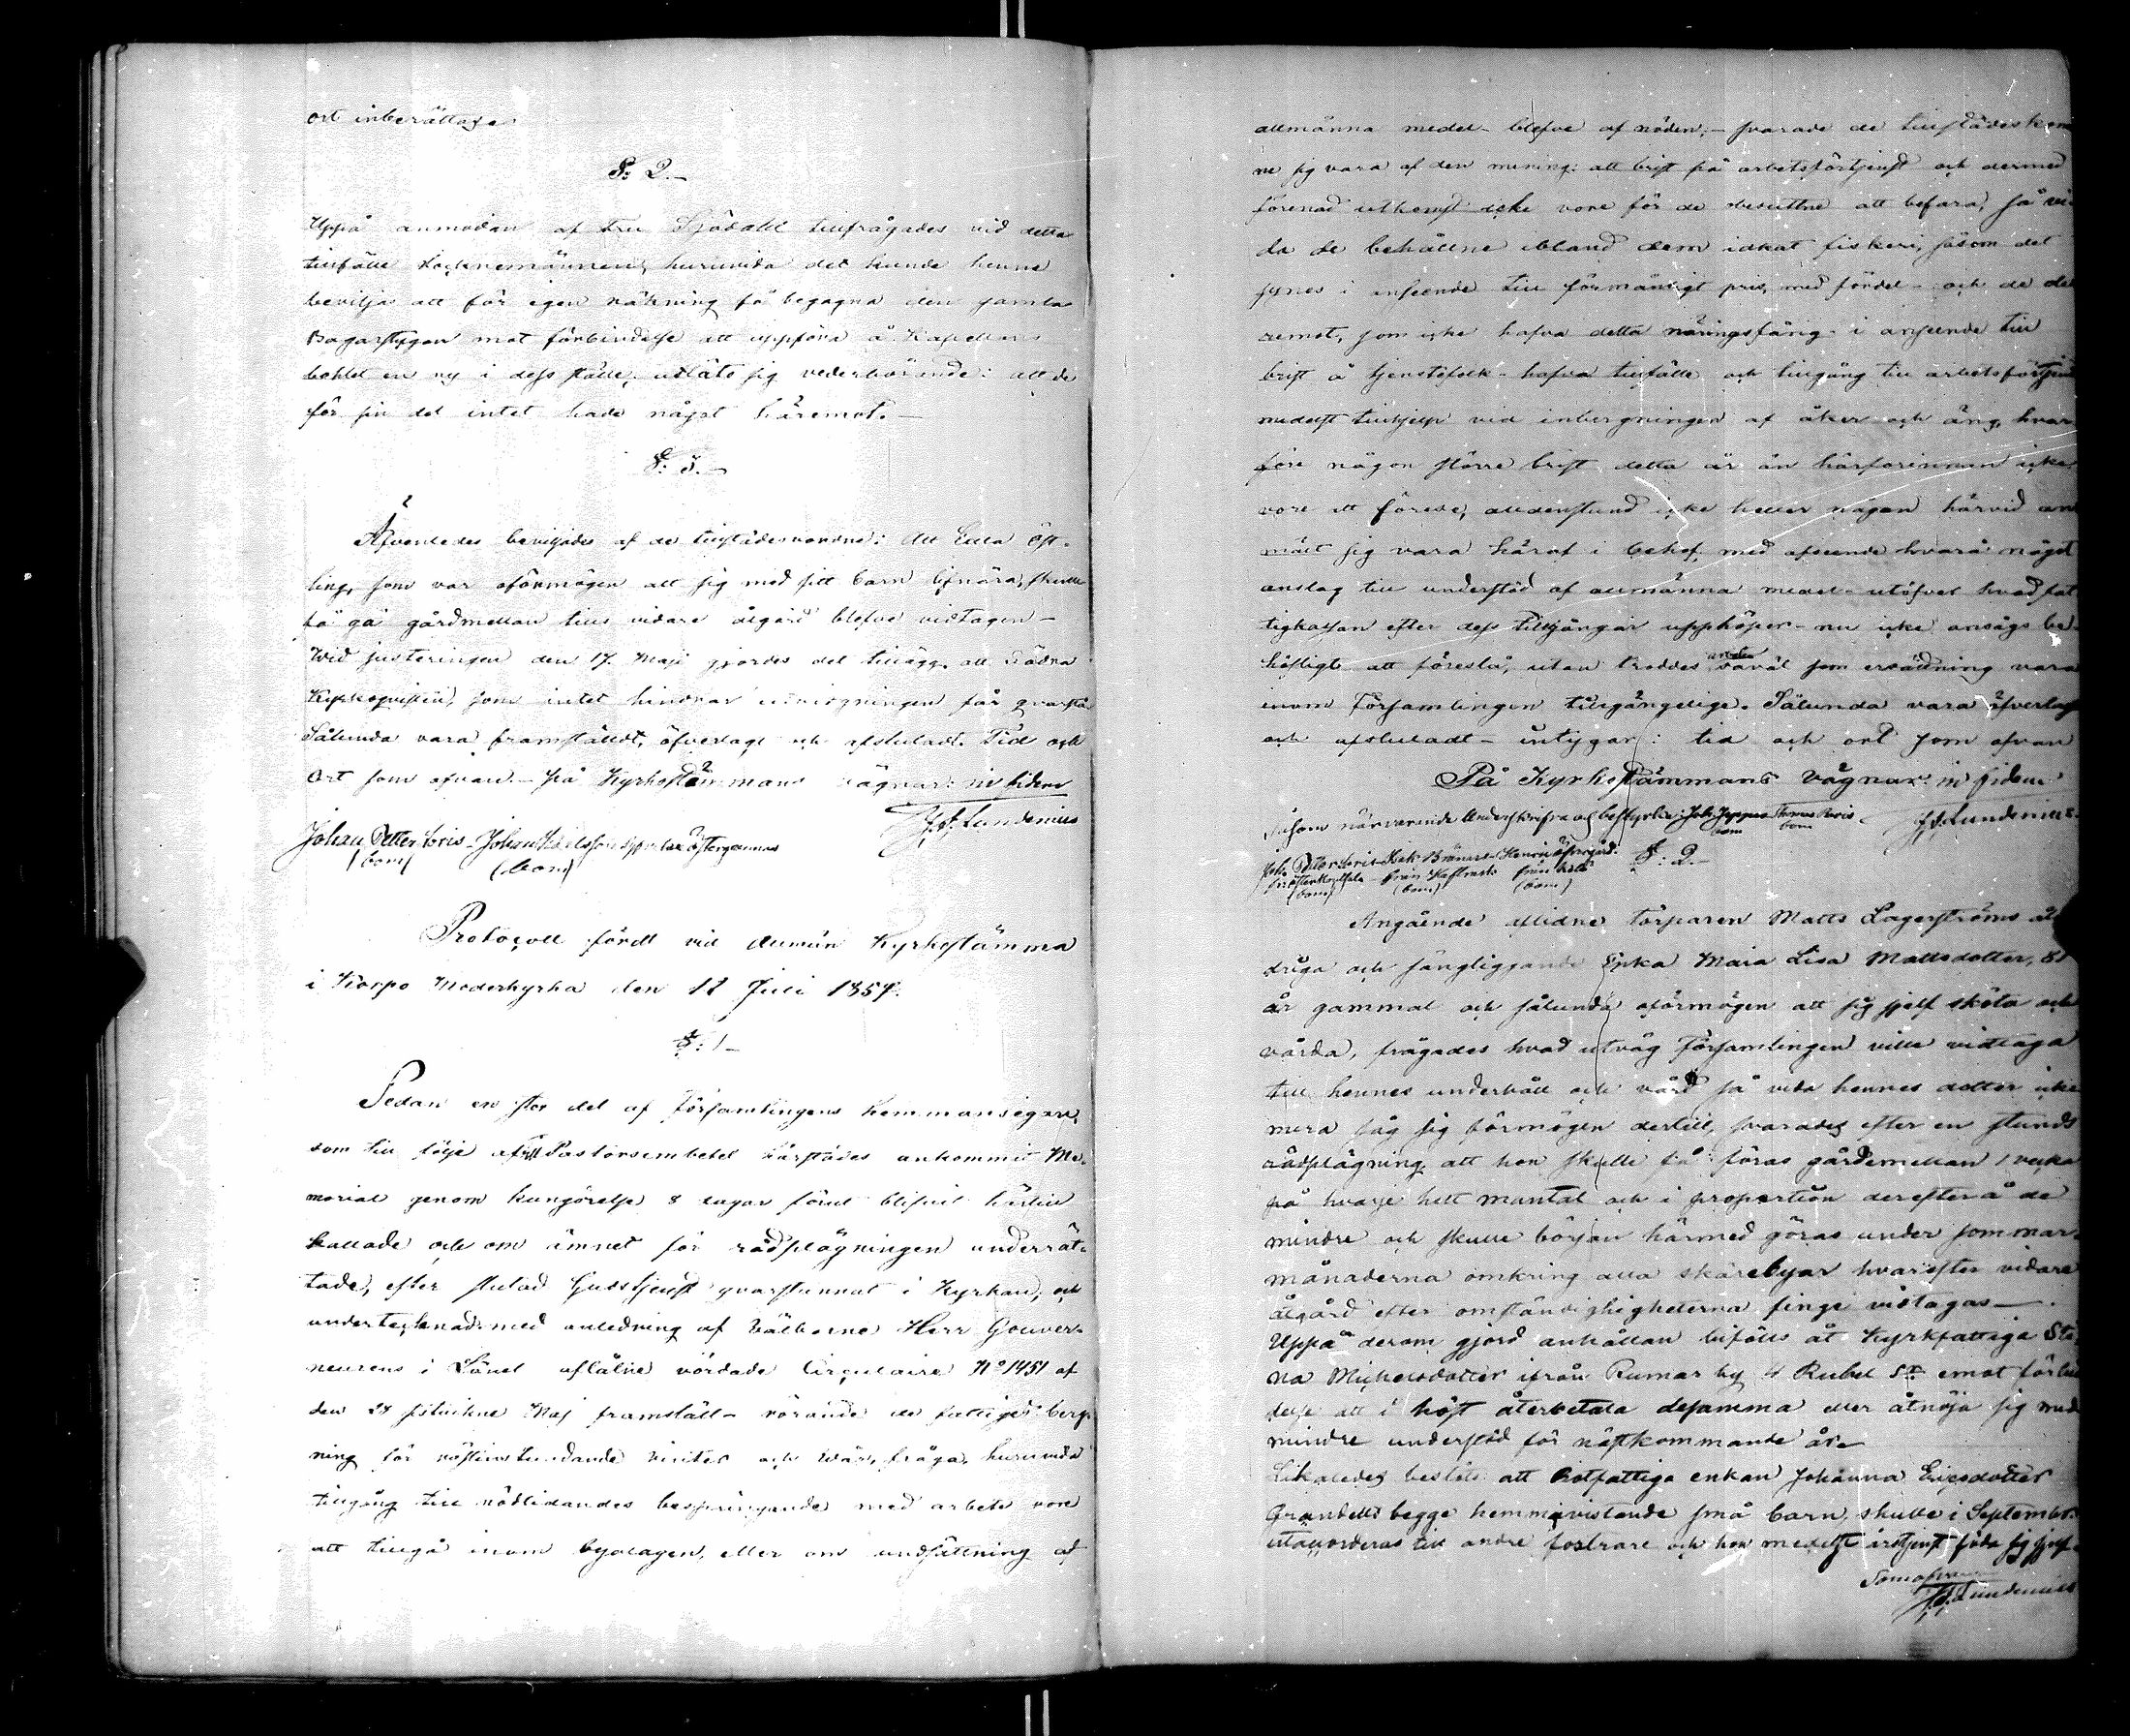 ort inberättade
§: 2.-
Uppå anmodan af Fru Sjödahl tillfrågades vid detta
tillfälle Socknemännen, huruvida det kunde henne
beviljas att för egen räkning få begagna den gamla
Bagarstugan mot förbindelse att uppföra å Kapellans
bohlet en ny i dess ställe, utläto sig vederbörande: att de
för sin del intet hade något häremot.-
§: 3.-
Äfvenledes beviljades af de tillstädesvarande: Att Ulla Öst-
ling, som var oförmögen att sig med sitt barn lifnära, skulle
få gå gårdmellan tills vidare åtgärd blefve vidtagen-
Wid justeringen den 17. Maji gjordes det tillägg att Södra
som intet hindrar får qvarstå
Sålunda vara framstäldt, öfverlagt och afslutadt. Tid och
Ort som ofvan.- på Kyrkostämmans vägnar: in fidem
J. A. Lundenius
Johan Petter Loris - Johan
(bom) (bom)
Protocoll fördt vid allmän Kyrkostämma
i Korpo Moderkyrka den 12 Juli 1857.
§: 1-
Sedan en stor del af Församlingens Hemmansegare,
som till följe af till Pastorsembetet härstädes ankommit Me-
morial genom kungörelse 8 dagar förut blifvit härtill
kallade och om ämnet för rådplägningen underrät-
tade, efter slutad Gudstjenst qvarstannat i Kyrkan, och
undertecknad med anledning af Välborne Herr Gouver-
neurens i Länet aflåtne vördade Circulaire No 1451 af
den 28 sistlidne Maj framställt- rörande de fattiges berg-
ning för nästinstundande vinter och vår, fråga, huruvida
tillgång till nödlidandes bespringande med arbete vore
att tillgå inom byalagen, eller om undsättning af
allmänna medel- blefve af nöden;- svarade de tillstädeskom
ne sig vara af den mening: att brist på arbetsförtjenst och dermed
förenad utkomst icke vore för de besuttne att befara, så vi-
da de behållne ibland dem idkat fiskeri, såsom det
synes i anseende till förmånligt pris, med fördel- och de der
emot, som icke hafva detta näringsfång- i anseende till
brist å tjenstefolk- hafva tillfälle och tillgång till arbetsförtjenst
medelst tillhjelp vid inbergningen af åker och äng, hvar
före någon större brist detta år än härförinnan icke
vore att förese, alldenstund icke heller någon härvid an
mält sig vara häraf i behof, med afseende hvarå något
anslag till understöd af allmänna medel- utöfver hvad fat
tigkassan efter dess tillgångar - nu icke ansågs be-
höfligt att föreslå, utan troddes såväl som vara
inom Församlingen tillgängelige. Sålunda vara öfverlagt
och afslutadt- intygar: tid och ort som ofvan
På Kyrkostämmans vägnar: in fidem
Såsom närvarande underskrifva och bestyrka: Joh: Thomas Loris J. A. Lundenius
bom bom
Joh: Petter Loris Isak Henric
§: 2.-
(bom) (bom) (bom)
Angående aflidne torparen Matts Lagerströms ål
driga och sängliggande Enka Maia Lisa Mattsdotter, 81
år gammal och sålunda oförmögen att sig sjelf sköta och
vårda, frågades hvad utväg Församlingen ville vidtaga
till hennes underhåll och vård så vida hennes dotter icke
mera såg sig förmögen dertill, svarades efter en stunds
rådplägning att hon skulle få föras gårdemellan 1 vecka
på hvarje helt mantal och i proportion derefter å de
mindre och skulle början härmed göras under sommar
månaderna omkring alla skärebyar hvarefter vidare
åtgärd efter omständigheterna finge vidtagas-.
Uppå derom gjord anhållan bifölls åt Kyrkfattiga Sti-
na Michelsdotter ifrån Rumar by 4 Rubel Sr: emot förbin
delse att i höst återbetala desamma eller åtnöja sig med
mindre understöd för nästkommande år.
Likaledes beslöts att Rotfattiga enkan Johanna Ericsdotter
Grandells begge hemmavistande små barn, skulle i September
utackorderas till andre fostrare och hon medelst årstjenst föda sig sjelf.
Som ofvan
J. A. Lundenius